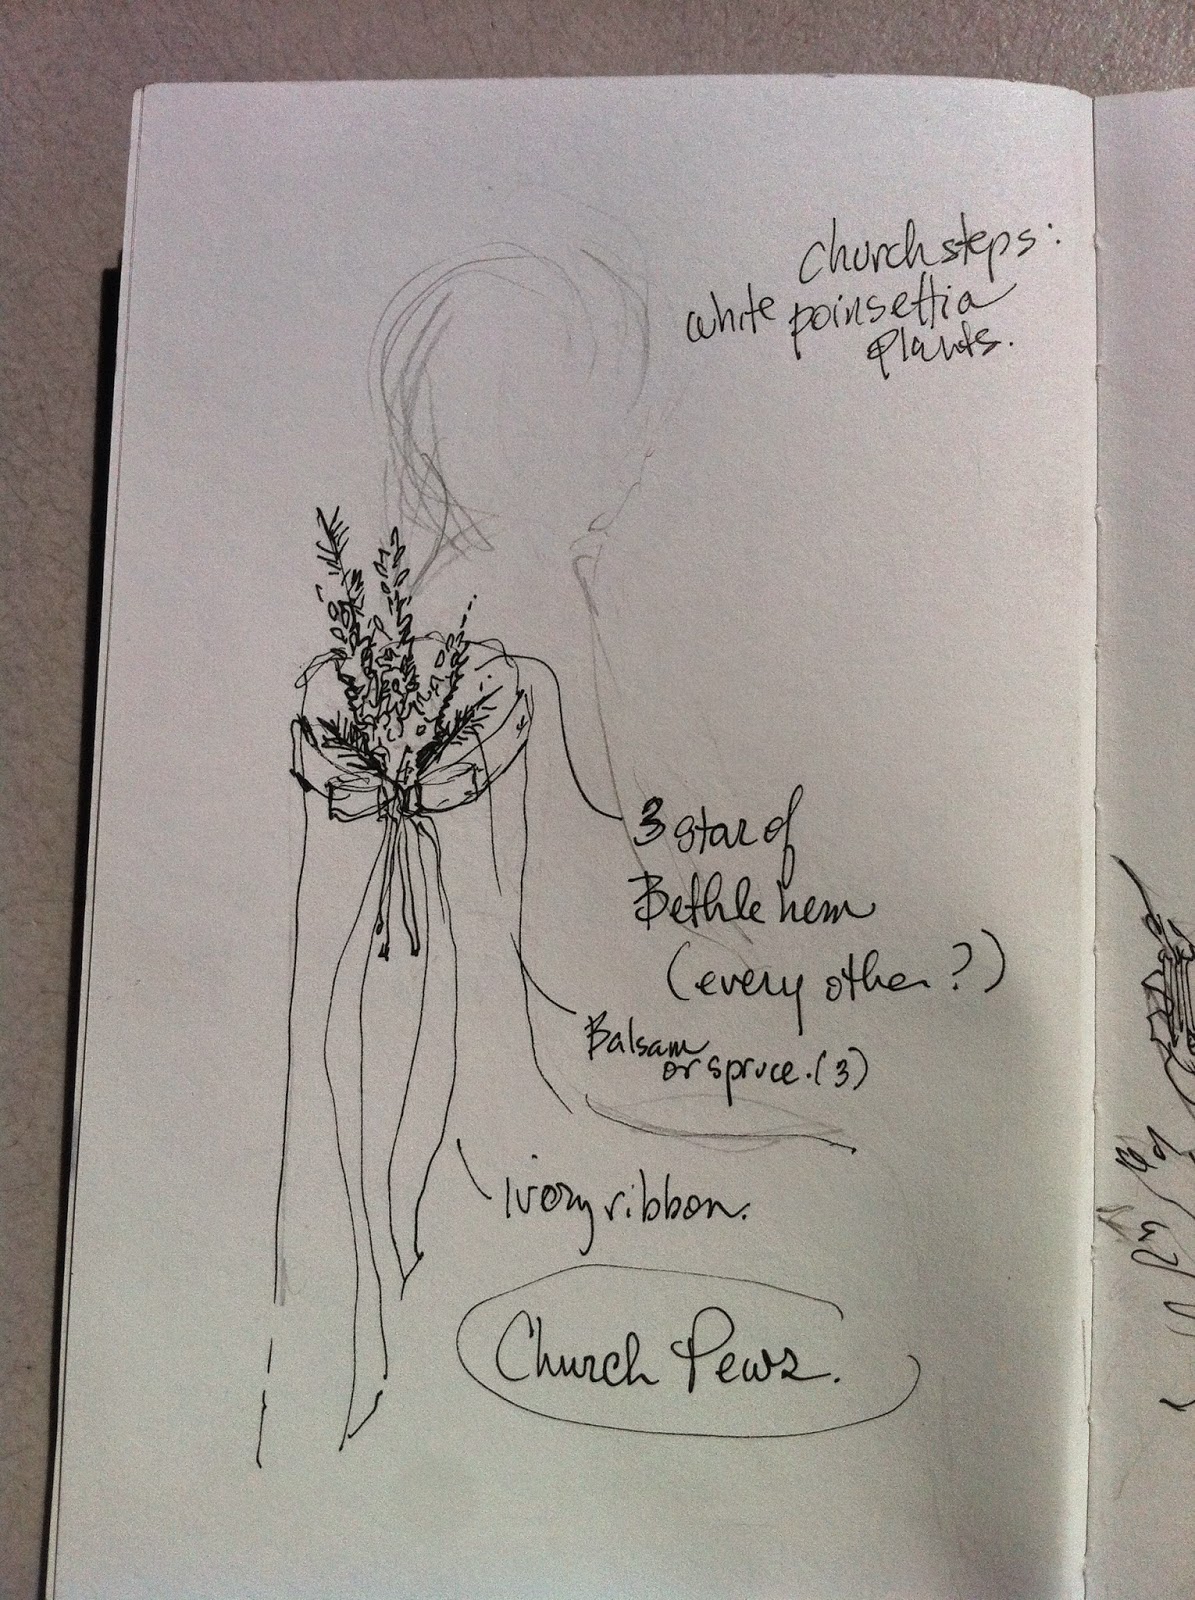 Church steps:
white poinsettia
plants.
3 star of
Bethlehem
(every other?)
Balsam
or spruce. (3)
ivory ribbon.
Church Pews.